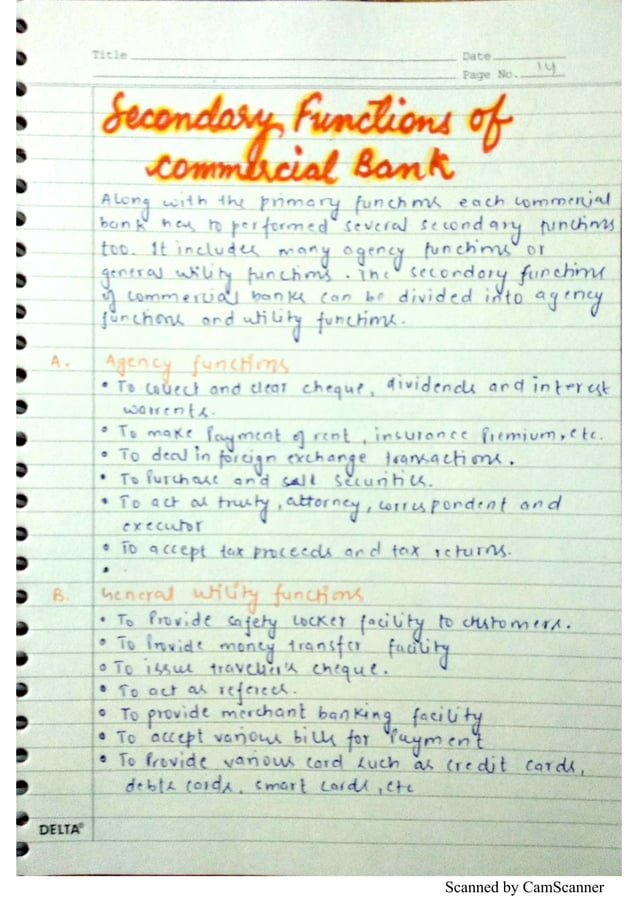 Title
Date
Page No. 14
Secondary Functions of
commercial Bank
Along with the primary functions each commercial
bank has to performed several secondary functions
too. It includes many agency functions or
general utility functions. The secondary functions
of commercial banks can be divided into agency
functions and utility functions.
A. Agency functions
• To collect and clear cheque, dividends and interest
warrents.
• To make Payment of rent, insurance Premium, etc.
• To deal in foreign exchange transactions.
• To Purchase and sell securities.
• To act as trusty, attorney, correspondent and
executor
• To accept tax proceeds and tax returns.
•
B. General utility functions
• To Provide safety locker facility to customers.
• To Provide money transfer facility
• To issue traveller's cheque.
• To act as referees.
• To provide merchant banking facility
• To accept various bills for Payment
• To Provide various card such as credit cards,
debts cards, smart cards, etc
DELTA®
Scanned by CamScanner